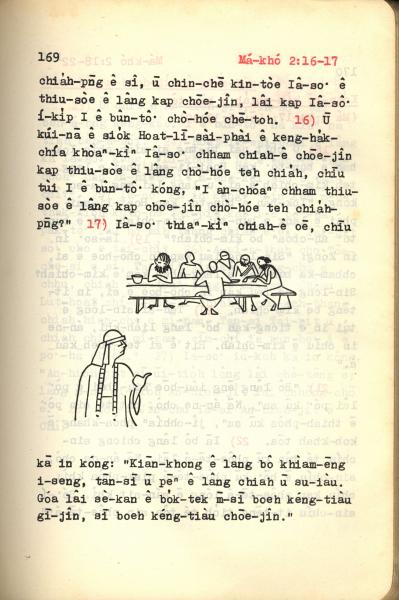 169
Má-khó 2:16-17
chia̍h-pn̄g ê sî, ū chin-chē kin-tòe Iâ-so· ê
thiu-sòe ê lâng kap chōe-jîn, lâi kap Iâ-so·
í-ki̍p I ê būn-tô· chò-hóe chē-toh. 16) Ū
kúi-nā ê sio̍k Hoat-lī-sài-phài ê keng-ha̍k-
chiá khòaⁿ-kìⁿ Iâ-so· chham chiah-ê chōe-jîn
kap thiu-sòe ê lâng chò-hóe teh chia̍h, chīu
tùi I ê būn-tô· kóng, "I àn-chóaⁿ chham thiu-
sòe ê lâng kap chōe-jîn chò-hóe teh chia̍h-
pn̄g?" 17) Iâ-so· thiaⁿ-kìⁿ chiah-ê oē, chīu
kā in kóng: "Kiān-khong ê lâng bô khiàm-ēng
i-seng, tān-sī ū pēⁿ ê lâng chiah ū su-iàu.
Góa lâi sè-kan ê bo̍k-tek m̄-sī boeh kéng-tiàu
gī-jîn, sī boeh kéng-tiàu chōe-jîn."